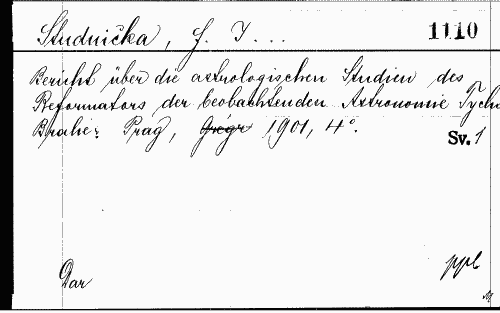 Studnička, F. I. ...
1110
Bericht über die astrologischen Studien des
Reformators der beobachtenden Astronomie Tycho
Brahe: Prag, Grégr 1901, 4°.
Sv. 1
Dar
ppb